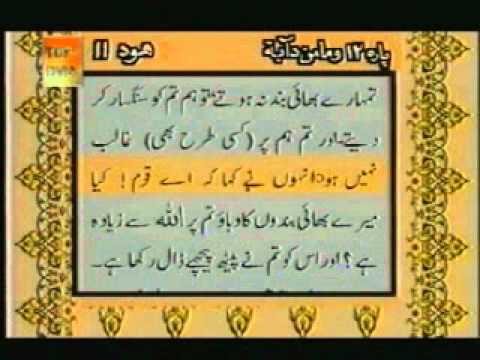 پارہ ۱۲ وما من دآبۃ
ھود ۱۱
تمہارے بھائی بند نہ ہوتے تو ہم تم کو سنگسار کر
دیتے اور تم ہم پر (کسی طرح بھی) غالب
نہیں ہو۔ انہوں نے کہا کہ اے قوم! کیا
میرے بھائی بندوں کا دباؤ تم پر اللہ سے زیادہ
ہے؟ اور اس کو تم نے پیٹھ پیچھے ڈال رکھا ہے۔